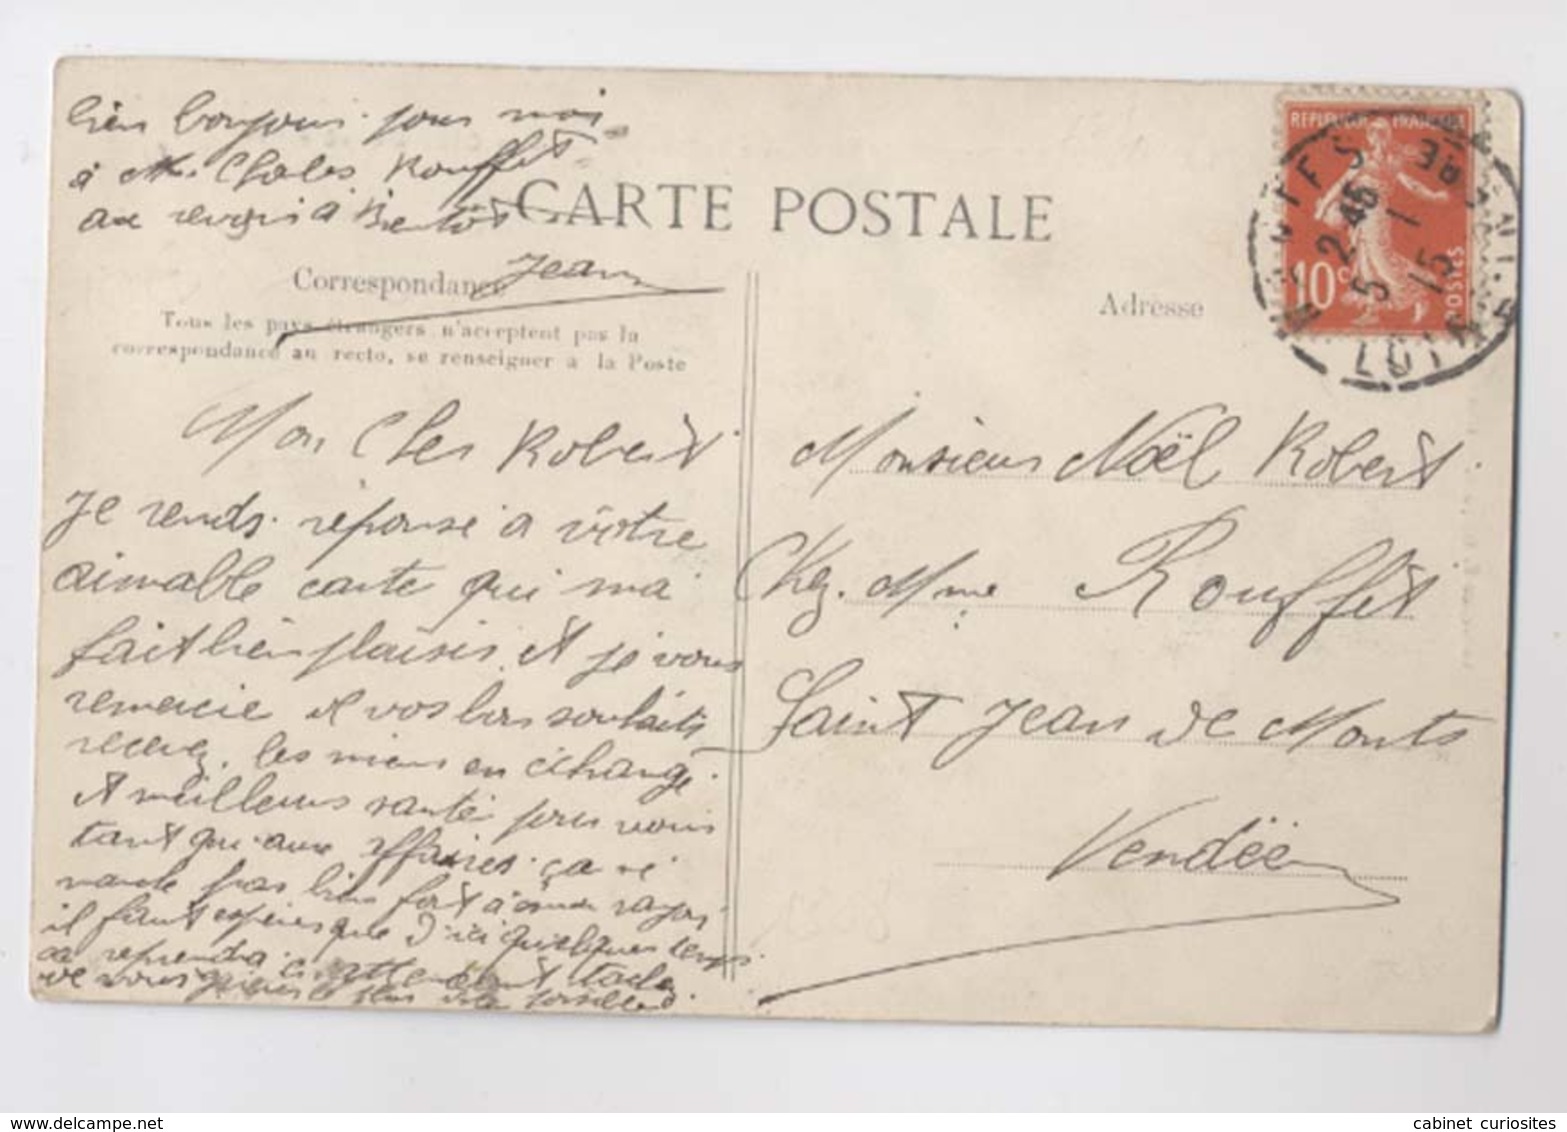 bien bonjour pour moi
à Mr. Charles Rouffet
au revoir à Bientôt
Jean
CARTE POSTALE
Correspondance
Tous les pays étrangers n'acceptent pas la
correspondance au recto, se renseigner à la Poste
Adresse
REPUBLIQUE FRANCAISE
10c
POSTES
2 45
5 1
15
Mon Cher Robert
Je rends réponse a vôtre
aimable carte qui ma
fait bien plaisir et je vous
remercie de vos bons souhaits
recevez les miens en échange
et meilleurs santé pour vous
tant qu'aux affaires ça ne
marche pas bien fort à
il faut espérer que d'ici quelques temps
ça reprendra en attendant
de vous
Monsieur Noël Robert
Chez Mme Rouffet
Saint Jean de Monts
Vendée
cabinet curiosites
www.delcampe.net